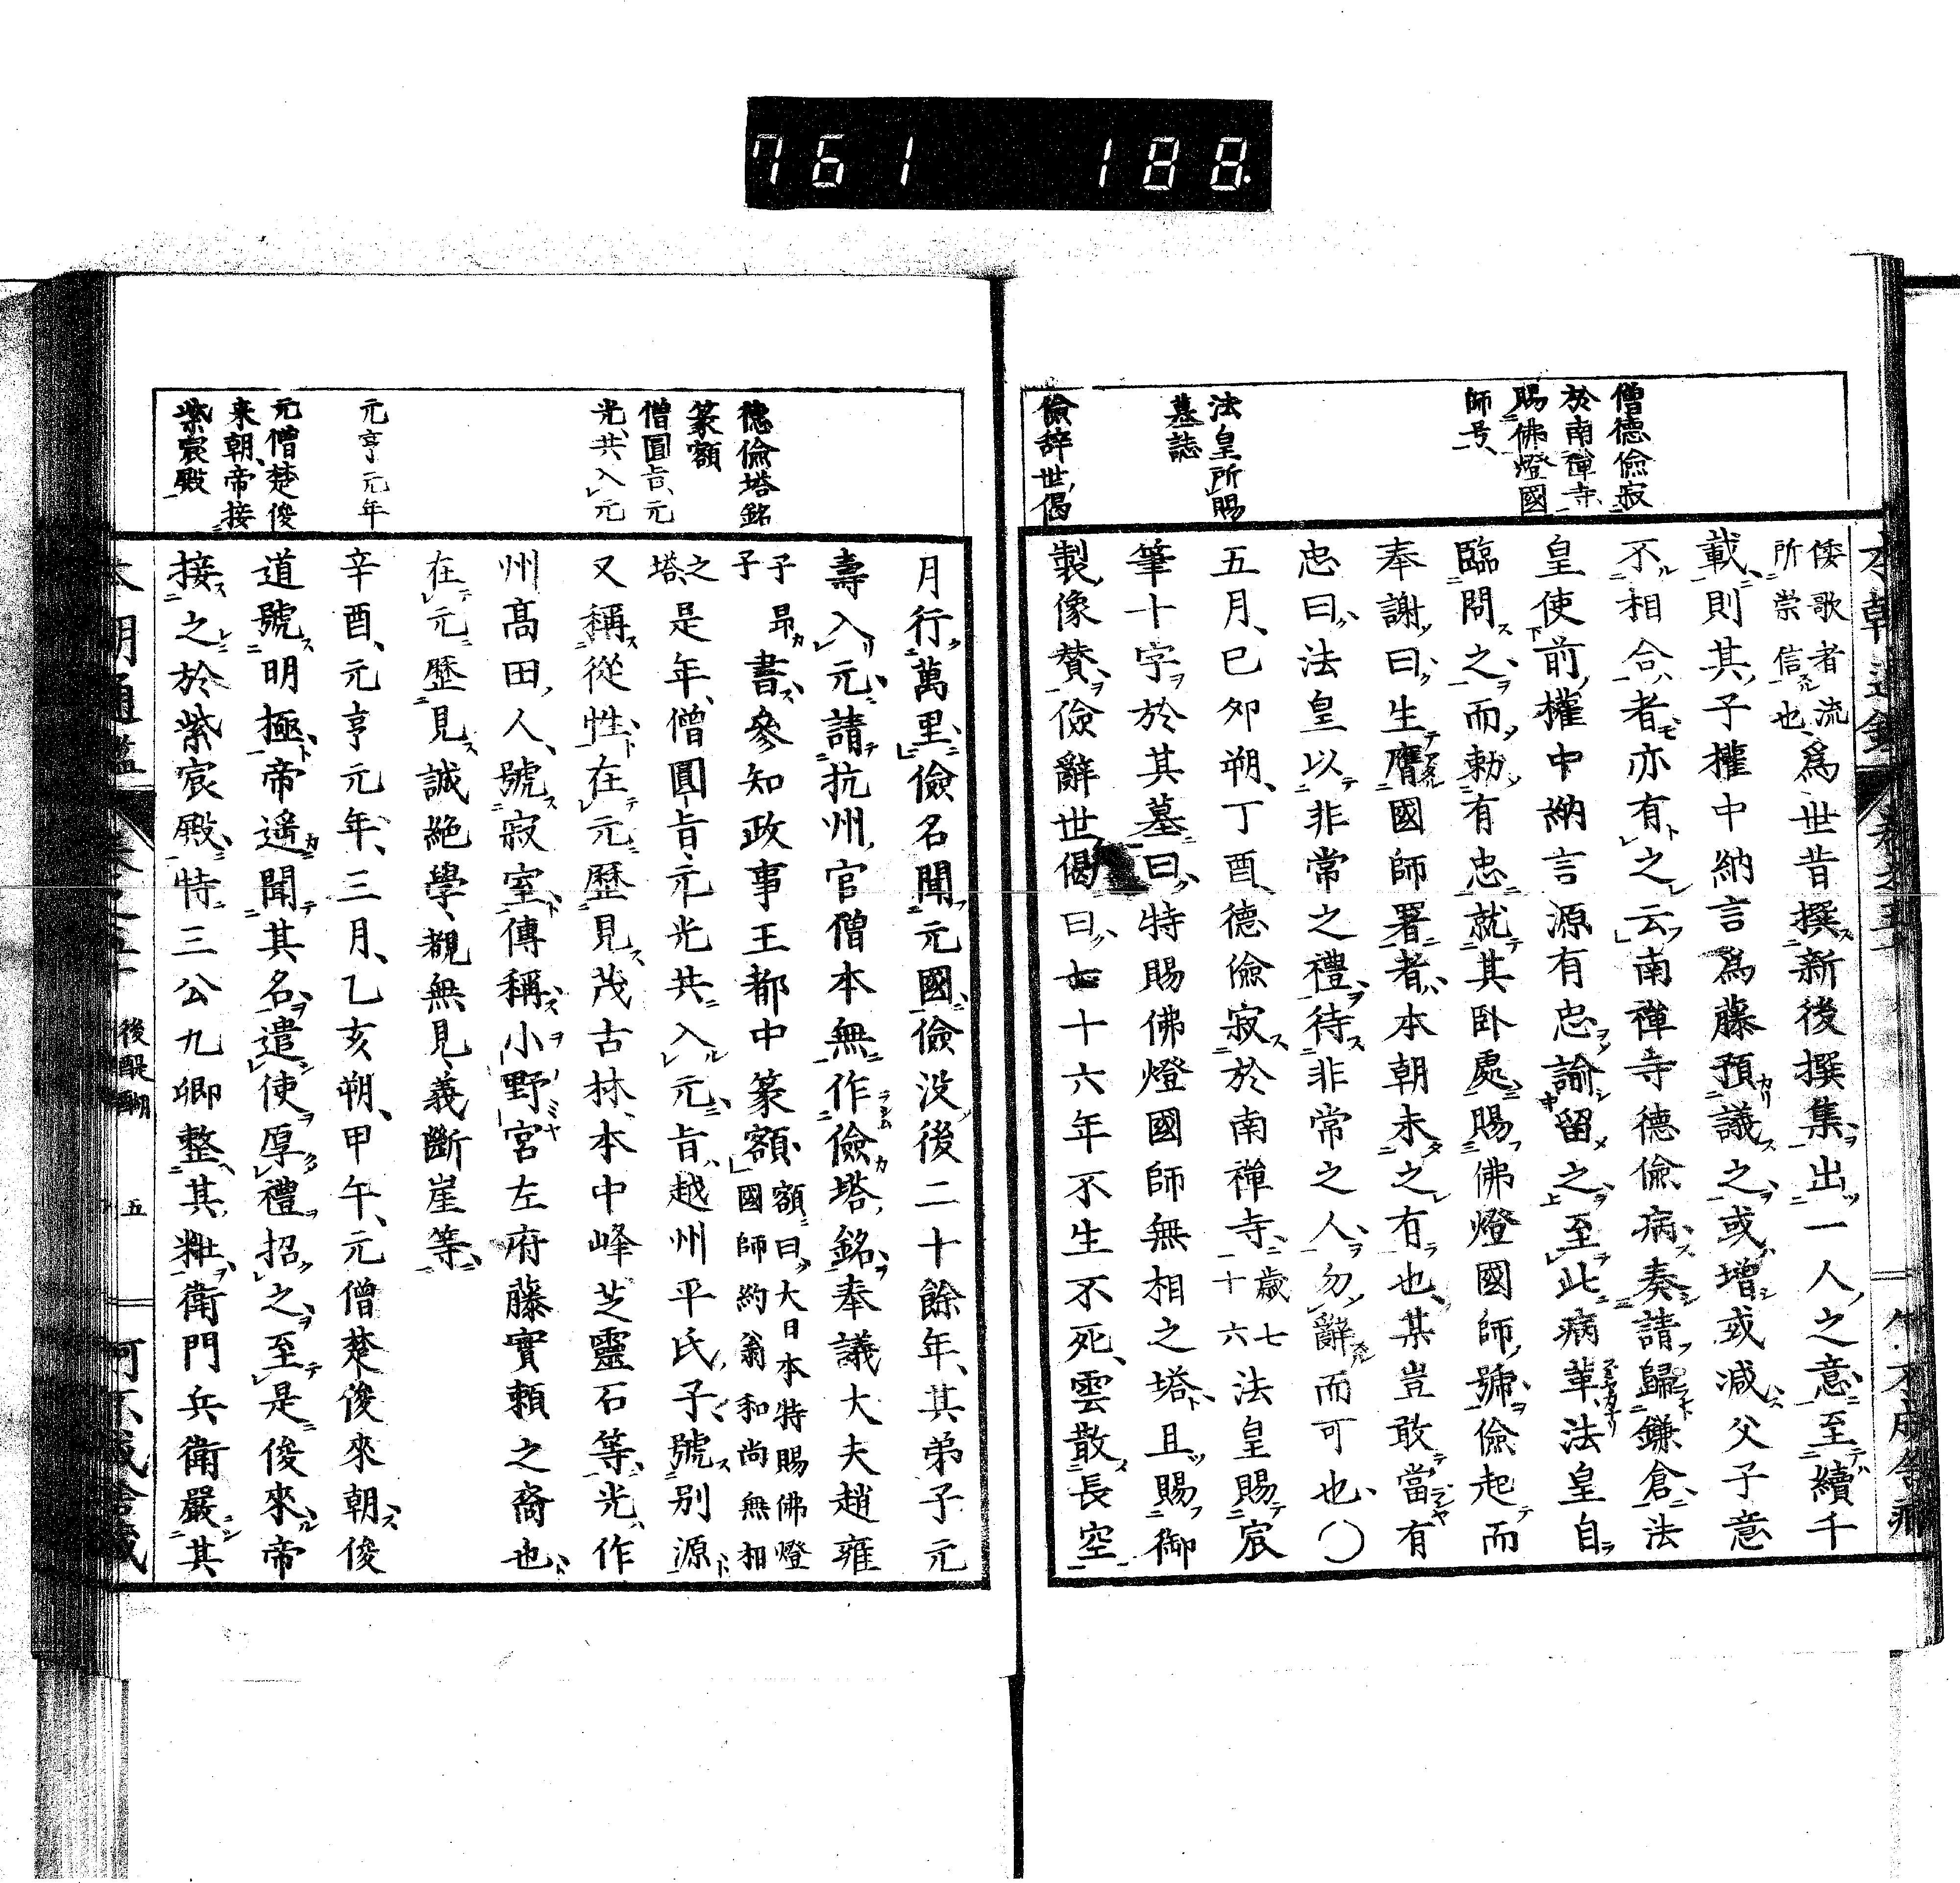 761 188
僧德儉寂
於南禪寺
賜佛燈國
師号
法皇所賜
墓誌
儉辞世偈
倭歌者流
所崇信也
爲世昔撰新後撰集出一人之意至續千
載則其子權中納言爲藤預議之或增或減父子意
不相合者亦有之云南禪寺德儉病奏請歸鎌倉法
皇使前權中納言源有忠諭留之至此病革法皇自
臨問之而勅有忠就其卧處賜佛燈國師號儉起而
奉謝曰生膺國師署者本朝未之有也某豈敢當有
忠曰法皇以非常之禮待非常之人勿辭而可也〇
五月己卯朔丁酉德儉寂於南禅寺
歲七
十六
法皇賜宸
筆十字於其墓曰特賜佛燈國師無相之塔且賜御
製像賛儉辭世偈曰七十六年不生不死雲散長空
德儉塔銘
篆額
僧圓旨元
光共入元
元亨元年
元僧楚俊
来朝帝接
紫宸殿
月行萬里儉名聞元國儉没後二十餘年其弟子元
壽入元請抗州官僧本無作儉塔銘奉議大夫趙雍
子
予
昻書參知政事王都中篆額
額曰大日本特賜佛燈
國師約翁和尚無相
之
塔
是年僧圓旨元光共入元旨越州平氏子號別源
又稱從性在元歷見茂古林本中峰芝靈石等光作
州高田人號寂室傳稱小野宮左府藤實頼之裔也
在元歷見誠絶學覩無見義斷崖等
辛酉元亨元年三月乙亥朔甲午元僧楚俊來朝俊
道號明極帝遥聞其名遣使厚禮招之至是俊來帝
接之於紫宸殿特三公九卿整其粧衛門兵衛嚴其
後醍醐
五